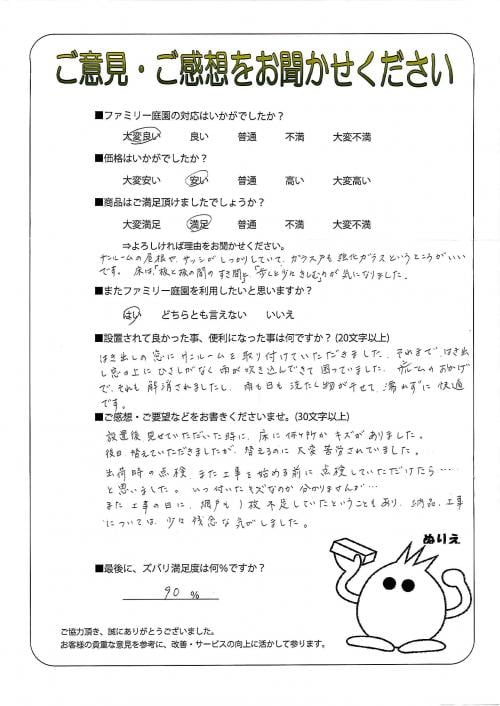 ご意見・ご感想をお聞かせください
■ファミリー庭園の対応はいかがでしたか？
大変良い 良い 普通 不満 大変不満
■価格はいかがでしたか？
大変安い 安い 普通 高い 大変高い
■商品はご満足頂けましたでしょうか？
大変満足 満足 普通 不満 大変不満
⇒よろしければ理由をお聞かせください。
サンルームの屋根や、サッシがしっかりしていて、ガラス戸も強化ガラスというところがいい
です。床は、「板と板の間のすき間」、「歩くと少々きしむ」のが気になりました。
■またファミリー庭園を利用したいと思いますか？
はい どちらとも言えない いいえ
■設置されて良かった事、便利になった事は何ですか？(20文字以上)
はき出しの窓にサンルームを取り付けていただきました。それまで、はき出
し窓の上にひさしがなく雨が吹き込んできて困っていました。サンルームのおかげ
で、それも解消されましたし、雨も日も洗たく物が干せて、濡れずに快適
です。
■ご感想・ご要望などをお書きくださいませ。(30文字以上)
設置後見せていただいた時に、床に何ヶ所かキズがありました。
後日替えていただきましたが、替えるのに大変苦労されていました。
出荷時の点検、また工事を始める前に点検していただけたら…
と思いました。いつ付いたキズなのか分かりませんが…
また工事の日に、網戸も1枚不足していたということもあり、納品、工事
については、少々残念な気がしました。
ぬりえ
■最後に、ズバリ満足度は何％ですか？
90 ％
ご協力頂き、誠にありがとうございました。
お客様の貴重な意見を参考に、改善・サービスの向上に活かして参ります。